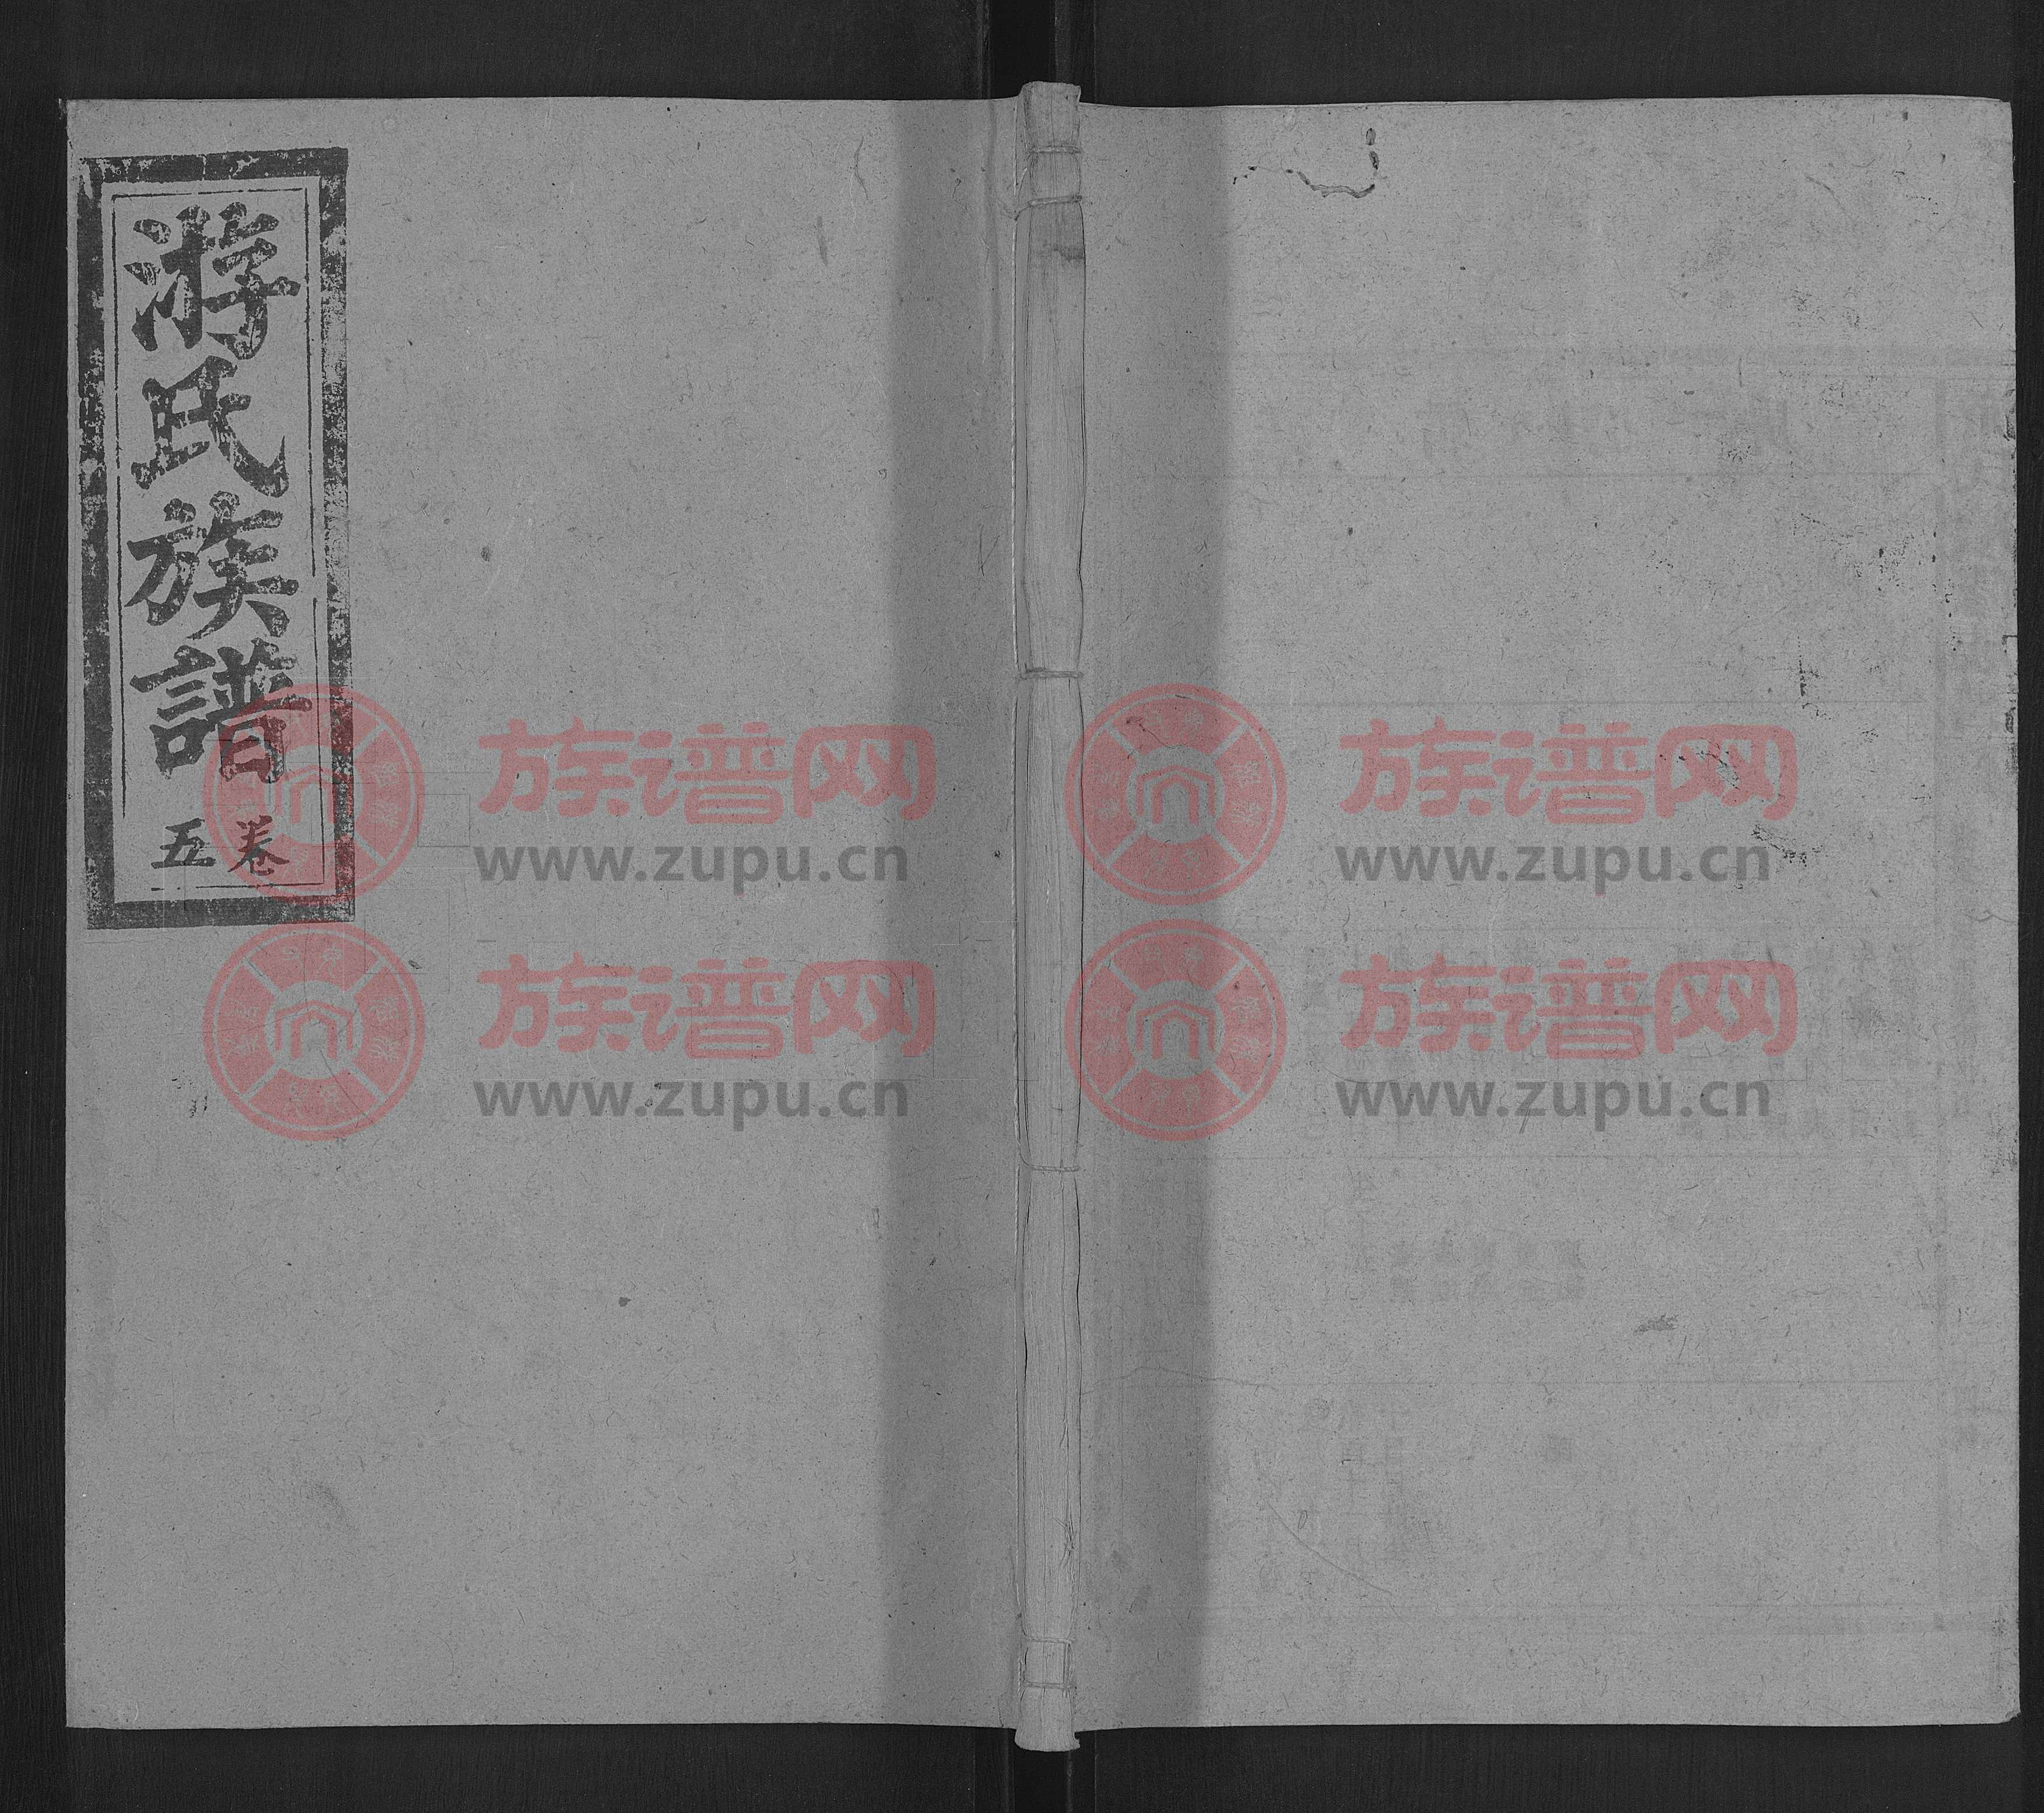 游氏族譜
卷五
族谱网
www.zupu.cn
族谱网
www.zupu.cn
族谱网
www.zupu.cn
族谱网
www.zupu.cn